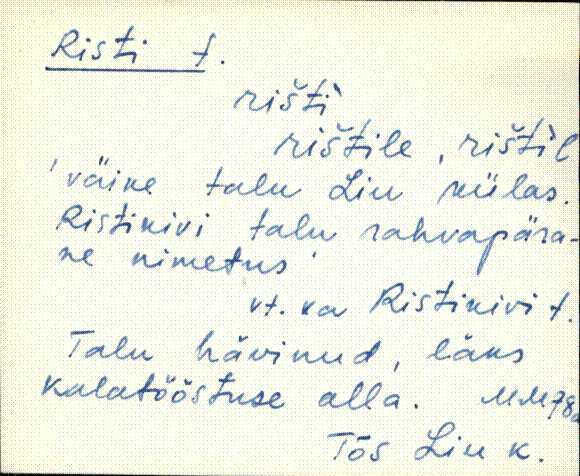 Risti t.
rišti̬
rištile, rišti̬l
'väike talu Liu külas.
Ristikivi talu rahvapära-
ne nimetus'
vt. ka Ristikivi t.
Talu hävinud, läks
kalatööstuse alla. MM78a
Tõs Liu k.